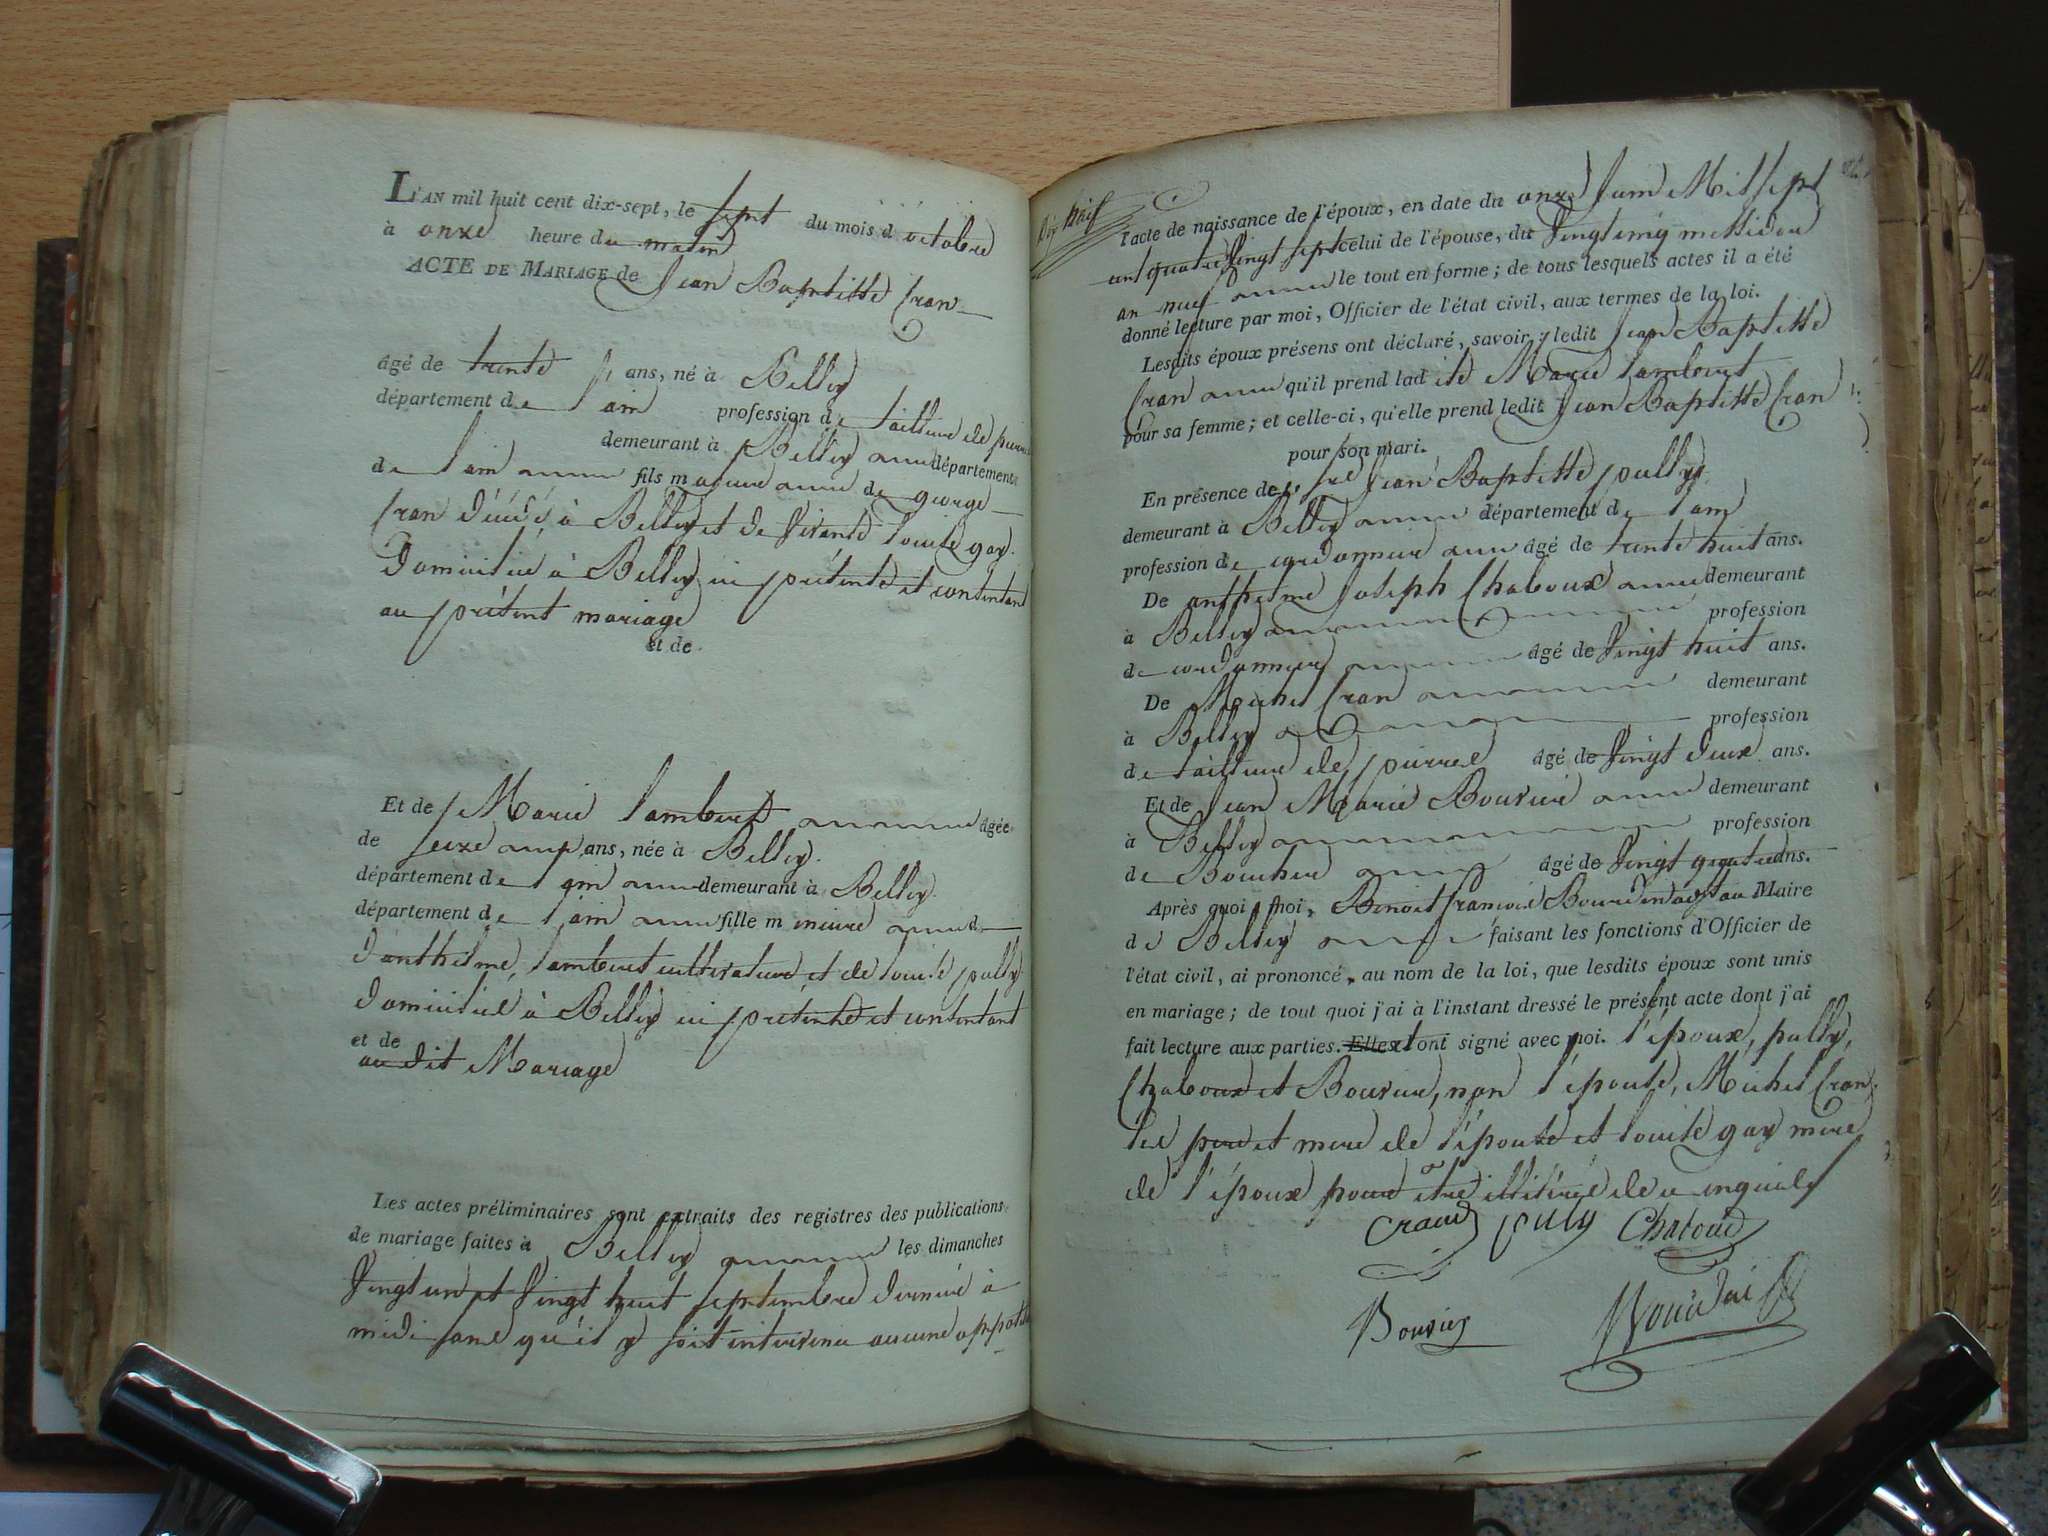 L'AN mil huit cent dix-sept, le sept du mois d'octobre
à onze heure du matin
ACTE DE MARIAGE de Jean Baptiste Cran
âgé de trente ans, né à Belley
département de l'ain profession de tailleur de pierre
demeurant à Belley département
de l'ain fils majeur de george
Cran décédé à Belley et de vivante louise gay
domiciliée à Belley ici présente et consentant
au présent mariage
et de
Et de Marie lambert âgée
de seize ans, née à Belley.
département de l'ain demeurant à Belley.
département de l'ain fille mineure de
d'anthelme lambert cultivateur et de louise pully
domiciliés à Belley ici présents et consentant
et de
au dit Mariage
Les actes préliminaires sont extraits des registres des publications
de mariage faites à Belley les dimanches
vingt un et vingt huit septembre dernier à
midi sans qu'il y soit intervenu aucune
l'acte de naissance de l'époux, en date du onze juin Mil sept
cent quatre vingt sept celui de l'épouse, du vingt cinq messidor
an neuf le tout en forme; de tous lesquels actes il a été
donné lecture par moi, Officier de l'état civil, aux termes de la loi.
Lesdits époux présens ont déclaré, savoir; ledit Jean Baptiste
Cran qu'il prend ladite Marie lambert
pour sa femme; et celle-ci, qu'elle prend ledit Jean Baptiste Cran
pour son mari.
En présence de Jean Baptiste pully
demeurant à Belley département de l'ain
profession de cordonnier âgé de trente huit ans.
De anthelme Joseph Chaboux demeurant
à Belley profession
de cordonnier âgé de vingt huit ans.
De Michel Cran demeurant
à Belley profession
de tailleur de pierre âgé de vingt deux ans.
Et de Jean Marie Bouvier demeurant
à Belley profession
de Boucher âgé de vingt quatre ans.
Après quoi, moi, Benoit françois Maire
de Belley faisant les fonctions d'Officier de
l'état civil, ai prononcé, au nom de la loi, que lesdits époux sont unis
en mariage; de tout quoi j'ai à l'instant dressé le présent acte dont j'ai
fait lecture aux parties. Elles ont signé avec moi. l'époux, pully,
Chaboux et Bouvier, non l'épouse, Michel Cran,
les pere et mere de l'épouse et louise gay mere
de l'époux pour être illitérés de ce enquis
Craud pully Chaboud
Bouvier